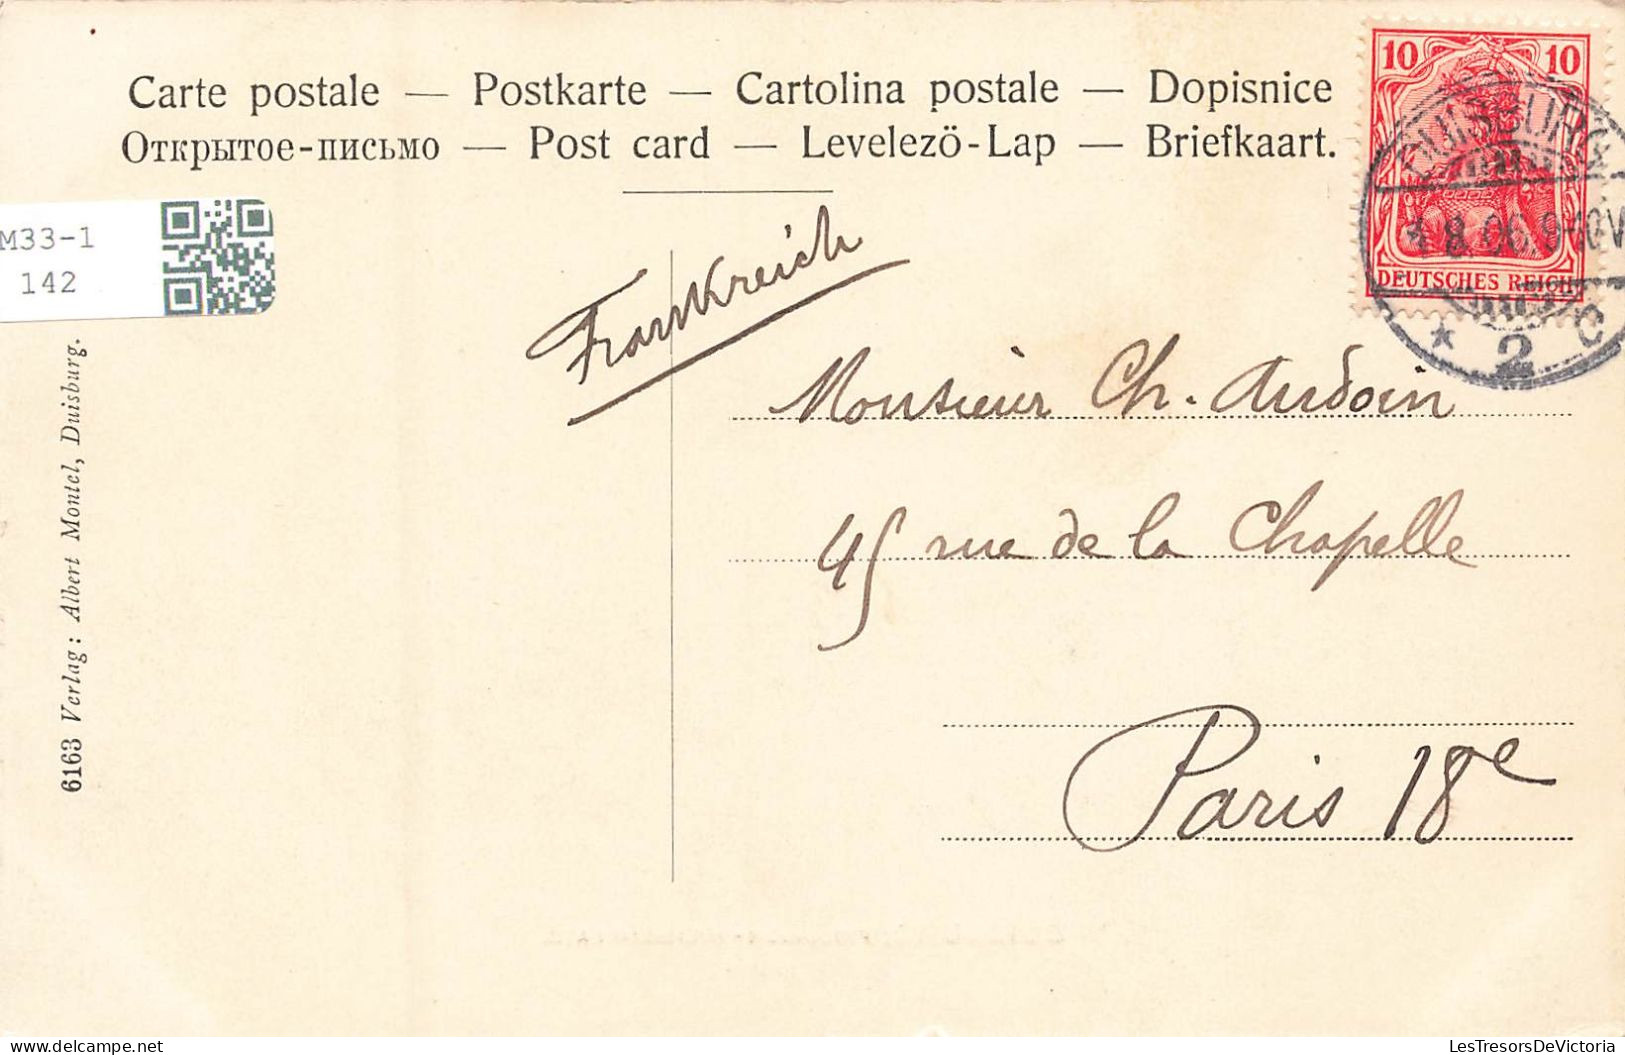 Carte postale — Postkarte — Cartolina postale — Dopisnice
Открытое-письмо — Post card — Levelezö-Lap — Briefkaart.
10 10
DUISBURG
8.06.9-10V
DEUTSCHES REICH
* 2 C
M33-1
142
Frankreich
Monsieur Ch. Audoin
45 rue de la Chapelle
Paris 18e
6163 Verlag: Albert Montel, Duisburg.
LesTresorsDeVictoria